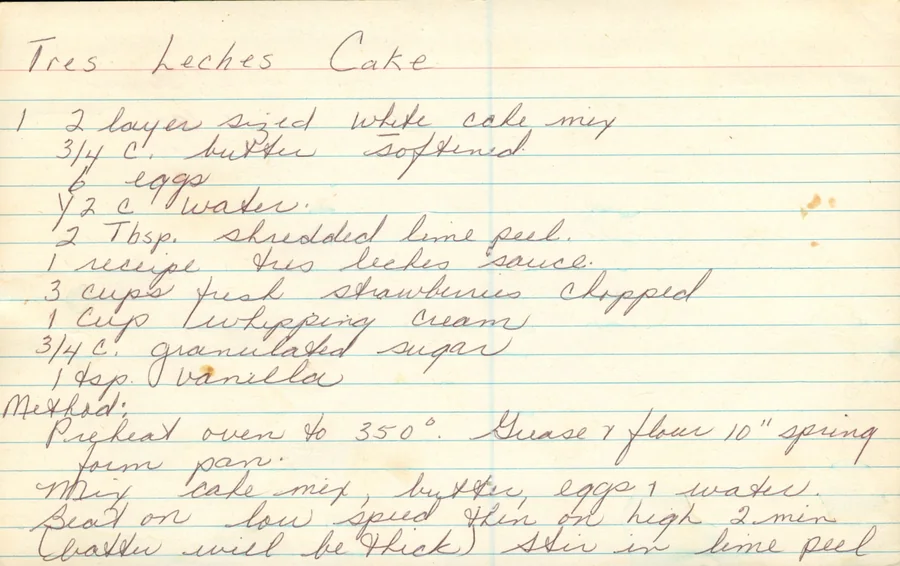 Tres Leches Cake
1 2 layer sized white cake mix
3/4 c. butter softened
6 eggs
1/2 c water.
2 Tbsp. shredded lime peel.
1 receipe tres leches sauce.
3 cups fresh strawberries chopped
1 cup whipping cream
3/4 c. granulated sugar
1 tsp. vanilla
Method:
Preheat oven to 350°. Grease & flour 10" spring
form pan.
Mix cake mix, butter, eggs & water.
Beat on low speed then on high 2 min
(batter will be thick) stir in lime peel